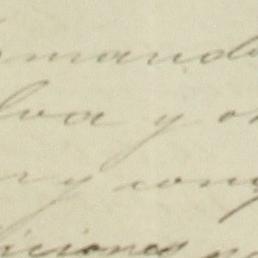 mand
lva y o
ry cong
iciones